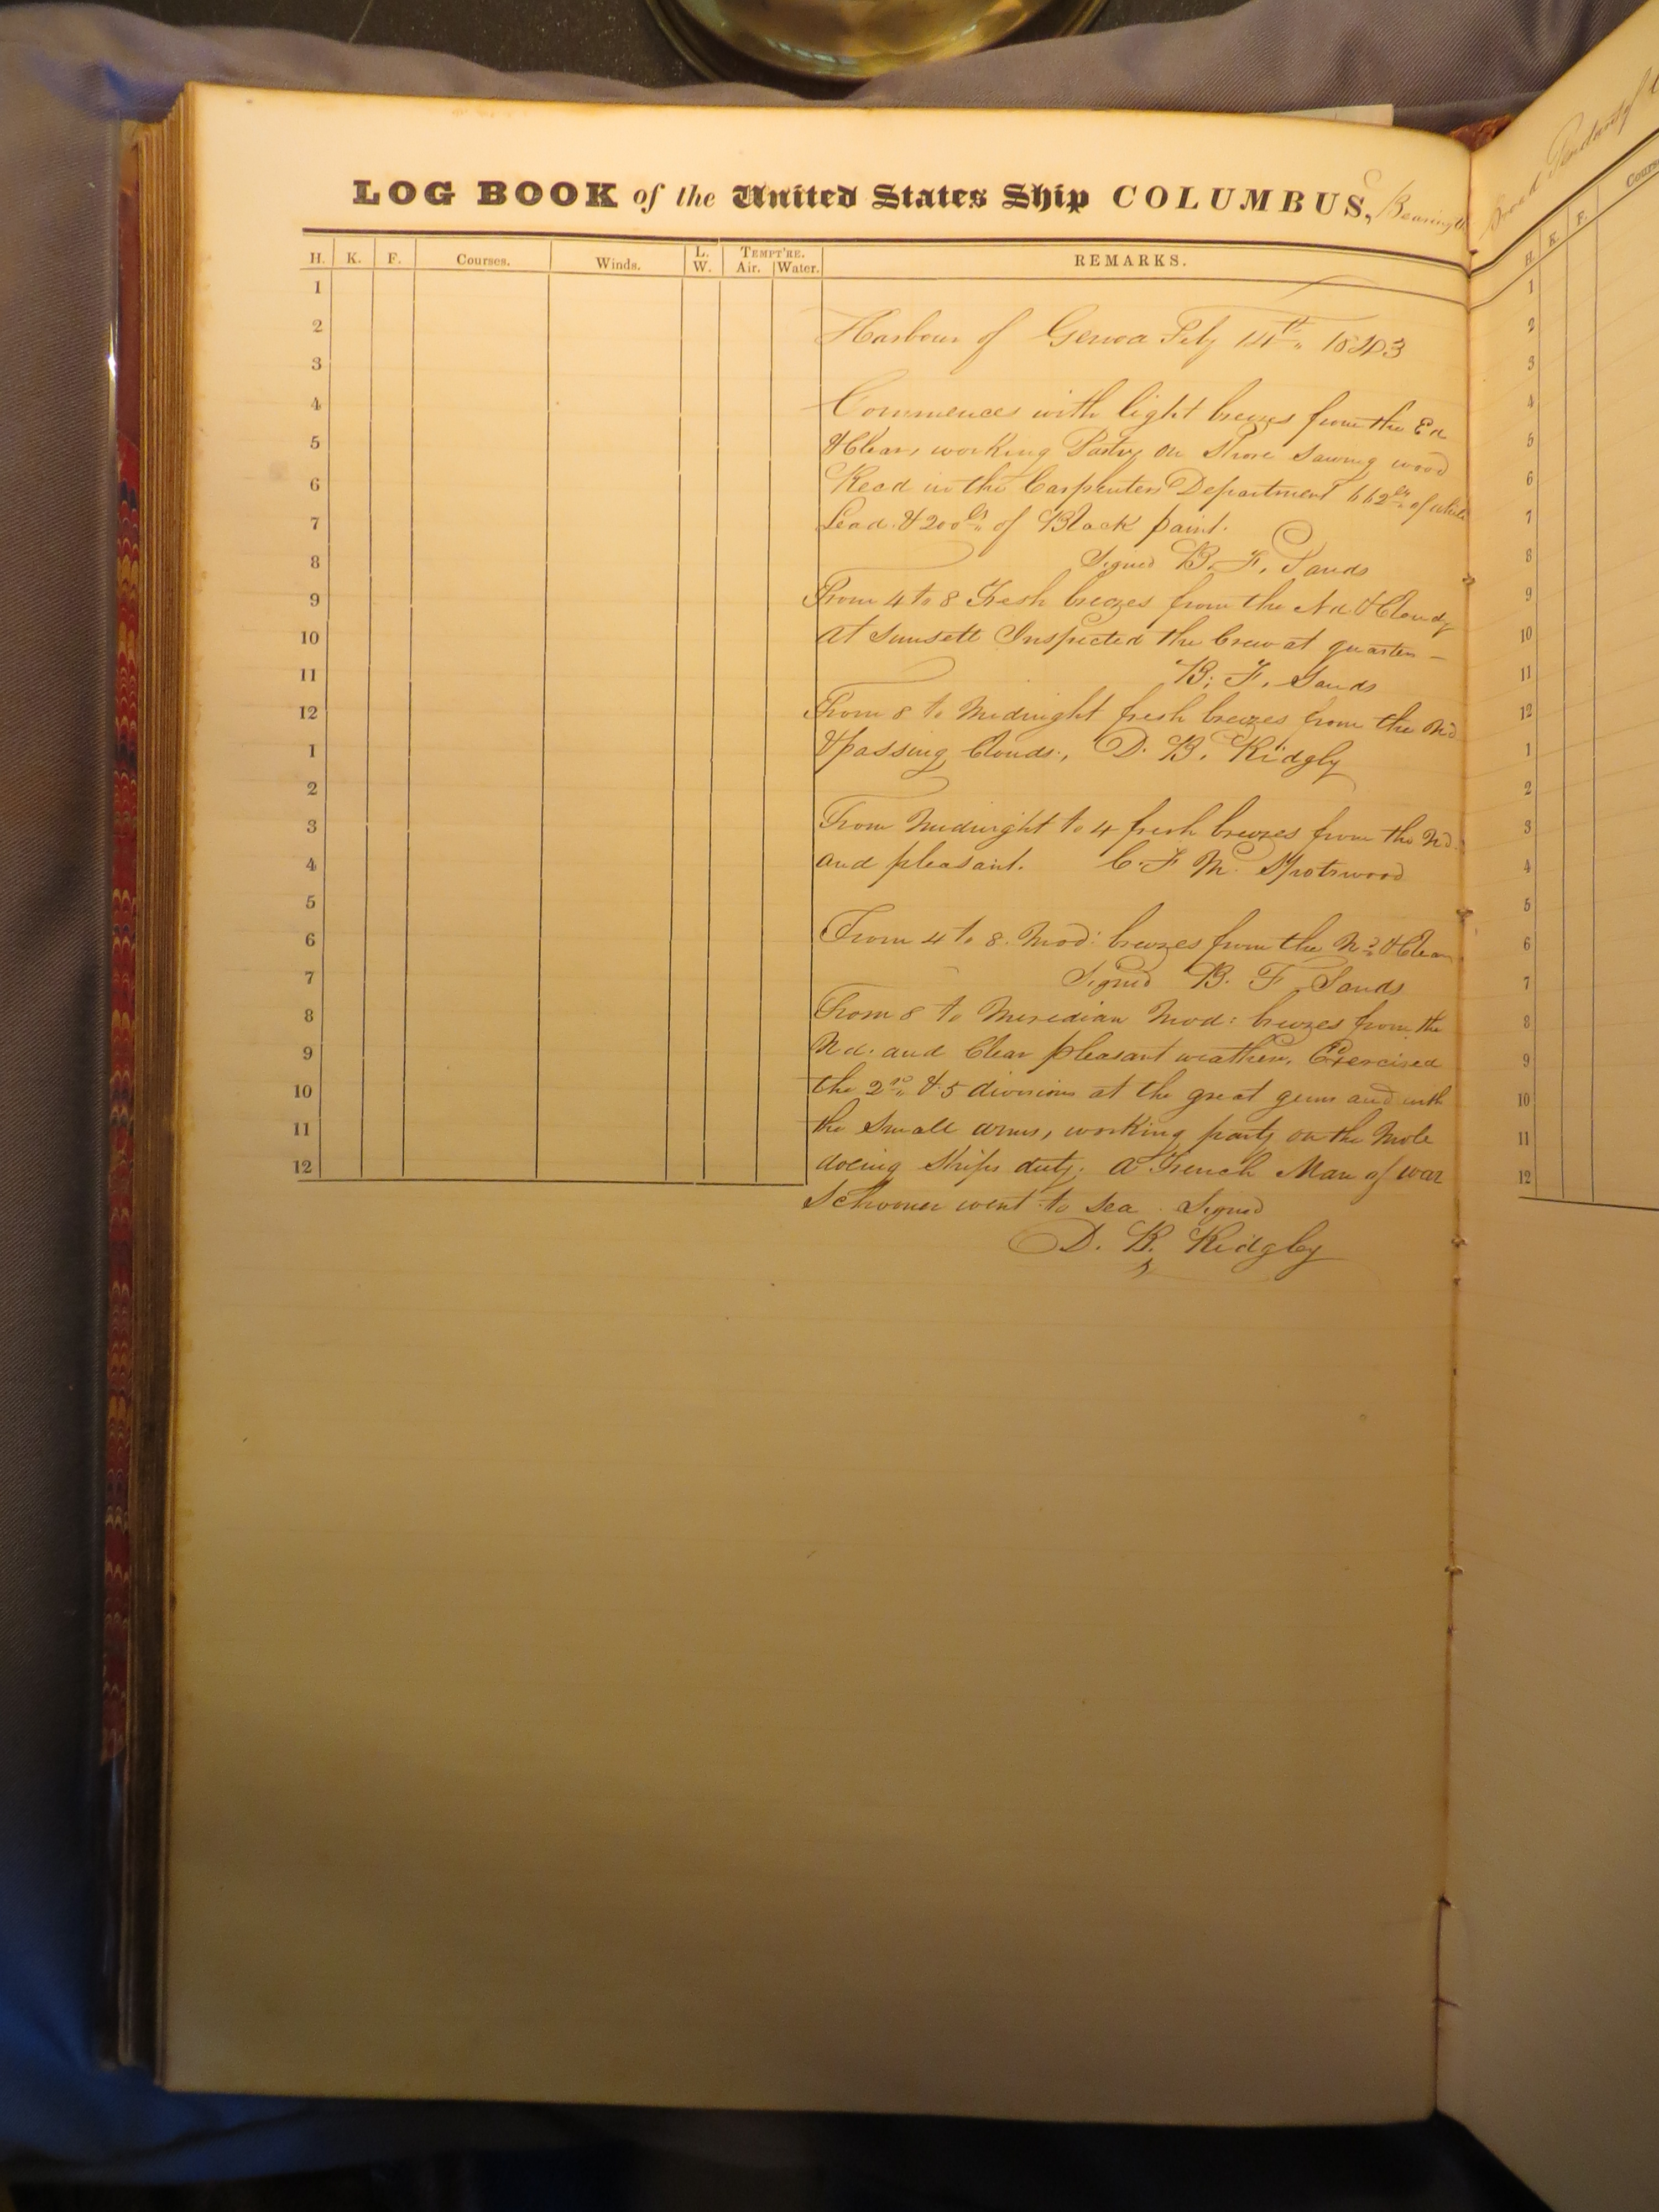 LOG BOOK of the United States Ship COLUMBUS, Bearing the Broad Pendant of
H. K. F. Courses. Winds. L. W. TEMPT'RE. Air. Water. REMARKS.
1
2
3
4
5
6
7
8
9
10
11
12
1
2
3
4
5
6
7
8
9
10
11
12
Harbour of Genoa Feby 14th 1843
Commences with light breezes from the Ed
& Clear, working Party on Shore Sawing wood
Recd in the Carpenters Department 662 lbs of white
Lead & 200 lbs of Black paint.
Signed B. F. Sands
From 4 to 8 Fresh breezes from the Nd & Cloudy
at Sunsett Inspected the Crew at quarters —
B. F. Sands
From 8 to Midnight fresh breezes from the Nd
& passing Clouds., D. B. Ridgly
From Midnight to 4 fresh breezes from the Nd.
and pleasant. C. F. M. Spotswood
From 4 to 8. Mod: breezes from the Nd & Clear
Signed B. F. Sands
From 8 to Meridian Mod: breezes from the
Nd. and Clear pleasant weather. Exercised
the 2nd & 5 divisions at the great guns and with
the Small arms, working party on the Mole
doeing Ships duty. A French Man of war
Schooner went to Sea. Signed
D. B. Ridgley
H. K. F. Cours
1
2
3
4
5
6
7
8
9
10
11
12
1
2
3
4
5
6
7
8
9
10
11
12